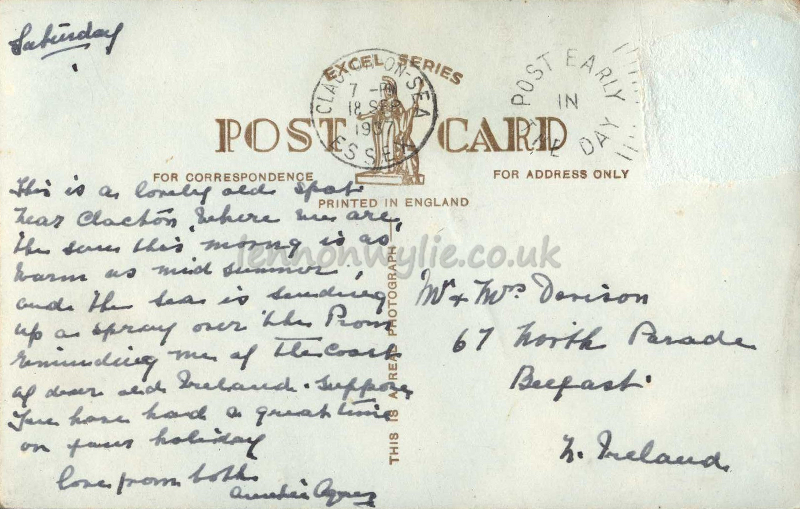 Saturday
EXCEL SERIES
CLACTON-ON-SEA
7 - PM
18 SEP
193
ESSEX
POST EARLY
IN
THE DAY
POST CARD
FOR CORRESPONDENCE
FOR ADDRESS ONLY
PRINTED IN ENGLAND
This is a lovely old spot
near Clacton, where we are,
the sun this morng is as
warm as mid summer,
and the sea is sending
up a spray over the Prom
reminding me of the coast
of dear old Ireland. Suppose
you have had a great time
on your holiday
love from both
Auntie Agnes
THIS IS A REAL PHOTOGRAPH
jennonwylie.co.uk
Mr & Mrs Denison
67 North Parade
Belfast.
N. Ireland